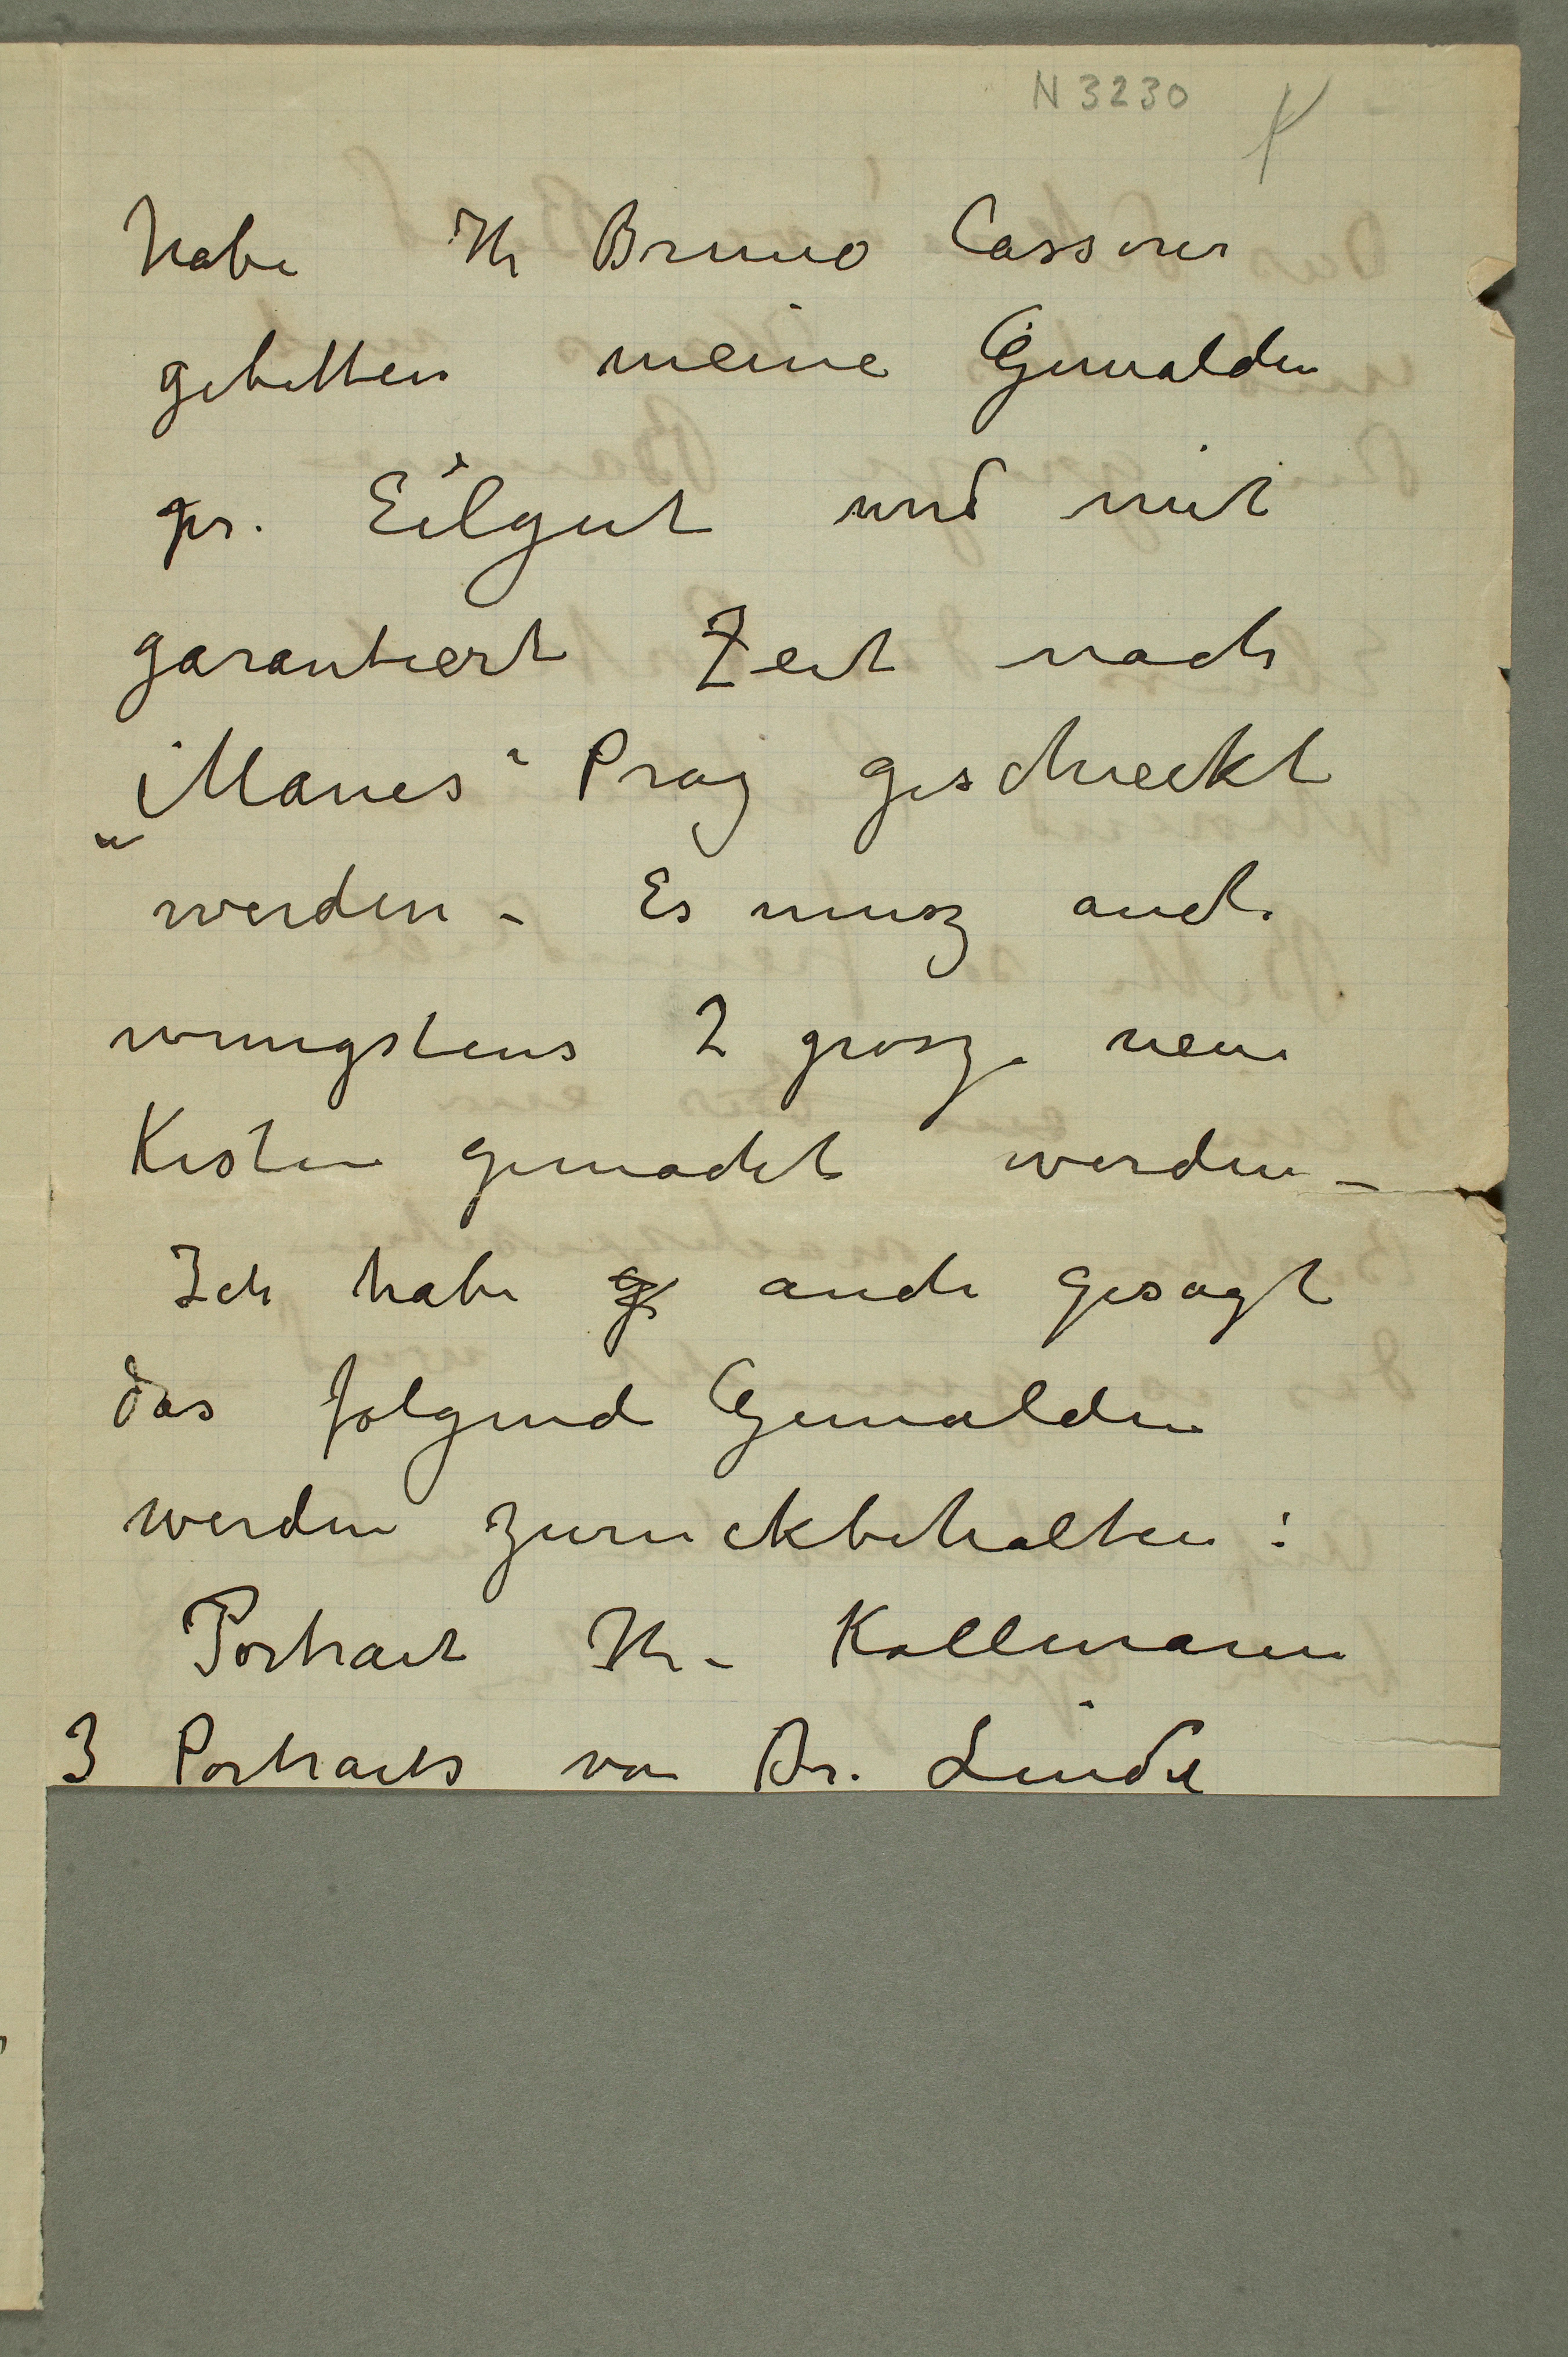 N 3230
habe Hr Bruno Cassirer
gebitten meine Gemalden
pr. Eilgut und mit
garantiert Zeit nach
„Manes“ Prag geschieckt
werden – Es musz auch
wenigstens 2 grosze neue
Kisten gemacht werden –
Ich habe g auch gesagt
das folgende Gemalden
werden zuruckbehalten :
Portrait Hr. Kollmann
3 Portraits von Dr. Linde